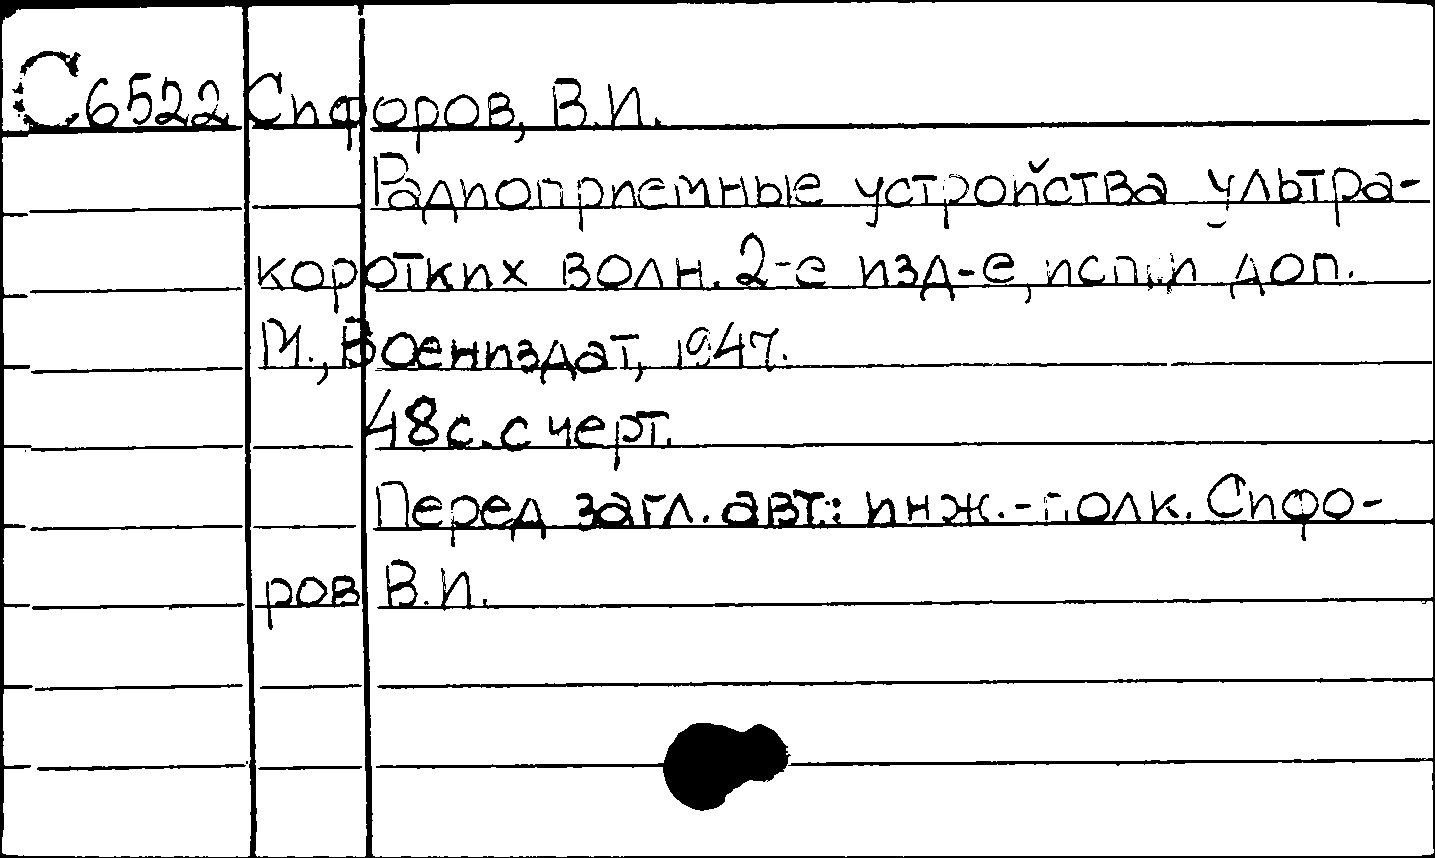 С6522 Сифоров, В.И.
Радиоприемные устройства ультра-
коротких волн. 2-е изд-е, исп. и доп.
М., Воениздат, 1947.
48 с. с черт.
Перед загл. авт.: инж.-полк. Сифо-
ров В.И.